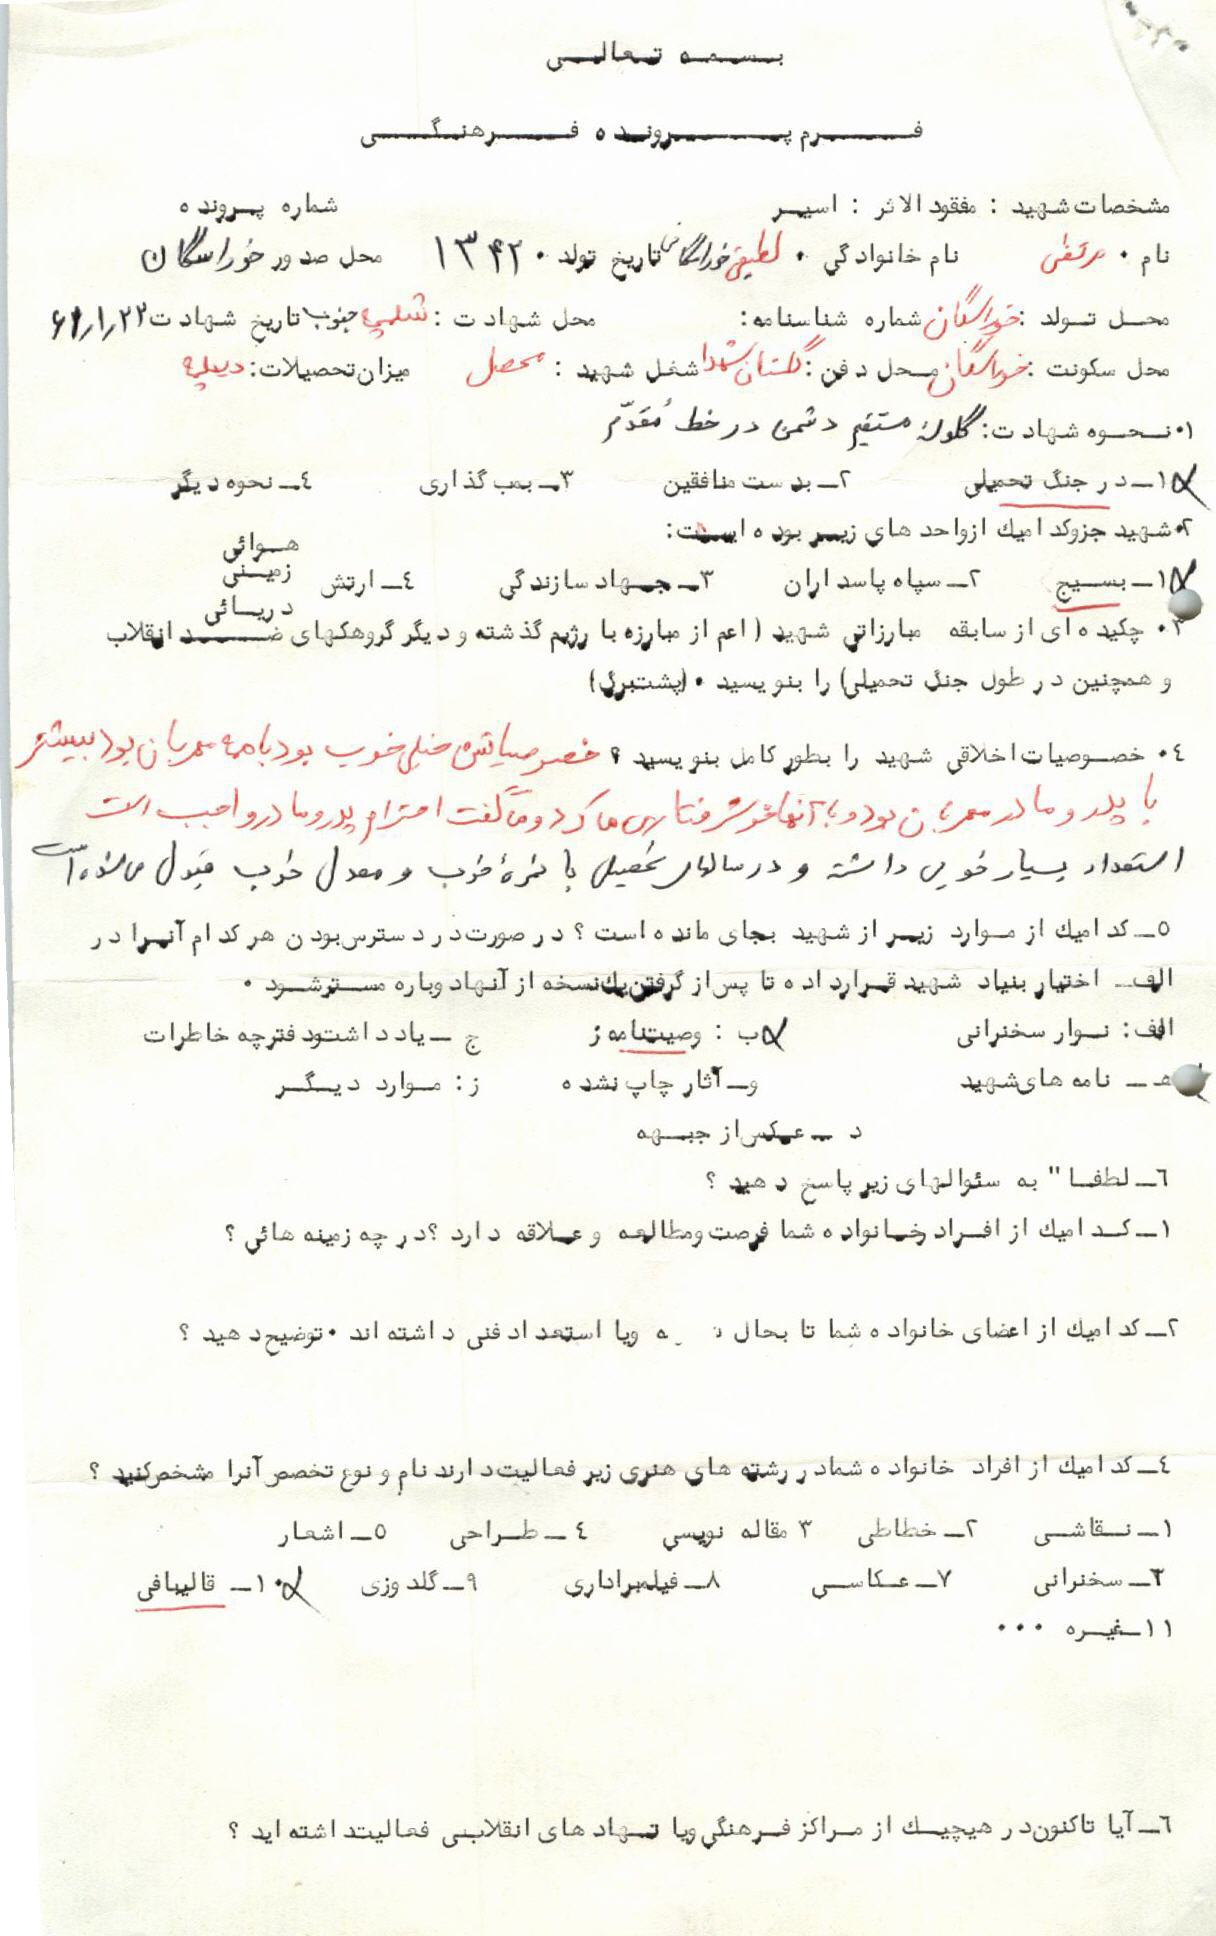 بسمه تعالی
فرم پرونده فرهنگی
مشخصات شهید : مفقود الاثر : اسیر شماره پرونده
نام ۰ مرتضی نام خانوادگی ۰ لطیفی خوراسگانی تاریخ تولد ۰ ۱۳۴۲ محل صدور خوراسگان
محل تولد : خوراسگان شماره شناسنامه: محل شهادت : شلمچه جنوب تاریخ شهادت ۶۲/۱/۲۲
محل سکونت : خوراسگان محل دفن : گلستان شهدا شغل شهید : محصل میزان تحصیلات: دیپلم
۱۰ نحوه شهادت: گلوله مستقیم دشمن در خط مُقدّم
۱ـ در جنگ تحمیلی ۲ـ بدست منافقین ۳ـ بمب گذاری ٤ـ نحوه دیگر
۲۰ شهید جزو کدامیك از واحد های زیر بوده است:
۱ـ بسیج ۲ـ سپاه پاسداران ۳ـ جهاد سازندگی ٤ـ ارتش هوائی زمینی دریائی
۳۰ چکیده ای از سابقه مبارزاتی شهید ( اعم از مبارزه با رژیم گذشته و دیگر گروهکهای ضد انقلاب
و همچنین در طول جنگ تحمیلی) را بنویسید ۰ (پشت برگ)
٤۰ خصوصیات اخلاقی شهید را بطور کامل بنویسید ؟ خصوصیاتش خیلی خوب بود با همه مهربان بود بیشتر
با پدر و مادر مهربان بود و با آنها خوشرفتاری می کرد و می گفت احترام پدر و مادر واجب است
استعداد بسیار خوبی داشته و در سالهای تحصیل با نمرهٔ خوب و معدل خوب قبول می شده است
٥ـ کدامیك از موارد زیر از شهید بجای مانده است ؟ در صورت در دسترس بودن هر کدام آنرا در
الف ـ اختیار بنیاد شهید قرار داده تا پس از گرفتن یك نسخه از آنها دوباره مسترد شود ۰
الف: نوار سخنرانی ب : وصیتنامه ز ج ـ یادداشت و دفترچه خاطرات
هـ ـ نامه های شهید و ـ آثار چاپ نشده ز : موارد دیگر
د ـ عکس از جبهه
٦ـ لطفا " به سئوالهای زیر پاسخ دهید ؟
۱ـ کدامیك از افراد خانواده شما فرصت و مطالعه و علاقه دارد ؟ در چه زمینه هائی ؟
۲ـ کدامیك از اعضای خانواده شما تا بحال ه ویا استعداد فنی داشته اند ۰ توضیح دهید ؟
٤ـ کدامیك از افراد خانواده شما در رشته های هنری زیر فعالیت دارند نام و نوع تخصص آنرا مشخص کنید ؟
۱ـ نقاشی ۲ـ خطاطی ۳ مقاله نویسی ٤ـ طراحی ٥ـ اشعار
٦ـ سخنرانی ۷ـ عکاسی ۸ـ فیلمبراداری ۹ـ گلدوزی ۱۰ـ قالیبافی
۱۱ـ غیره ۰۰۰
٦ـ آیا تاکنون در هیچیك از مراکز فرهنگی ویا نهاد های انقلابی فعالیت داشته اید ؟